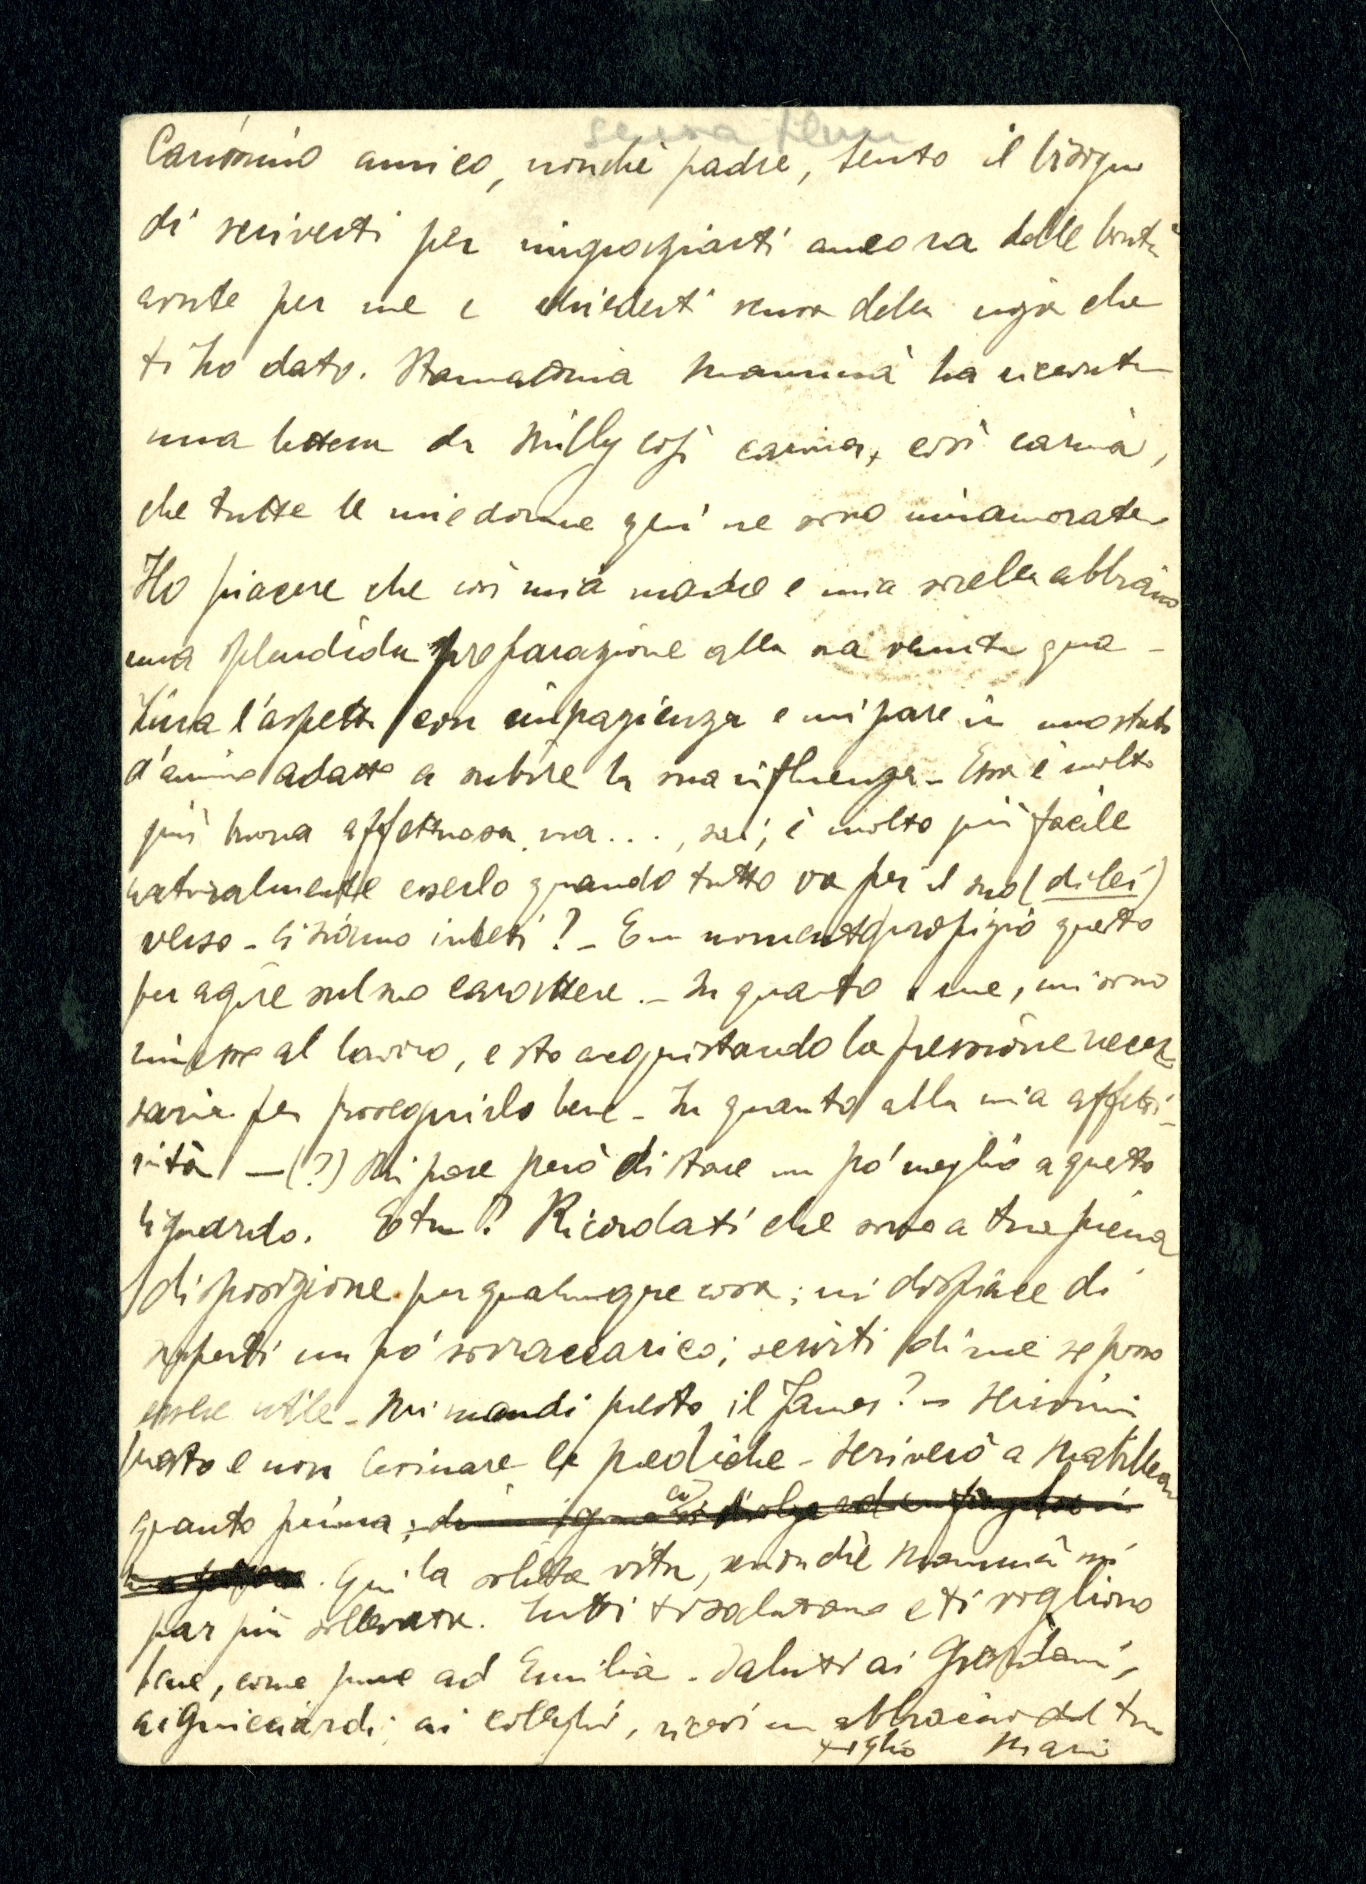 senza
Carissimo amico, nonchè padre, sento il bisogno
di scriverti per ringraziarti ancora delle bontà
avute per me e chiederti scusa della noja che
ti ho dato. Stamattina Mammà ha ricevuto
una lettera da Milly così carina, così carina,
che tutte le mie donne qui ne sono innamorate.
Ho piacere che così mia madre e mia sorella abbiano
una splendida preparazione alla sua venuta qua -
l'aspetta con impazienza e mi pare in uno stato
d'animo adatto a subire la sua influenza - Essa è molto
più buona affettuosa ma . . . , sai, è molto più facile
naturalmente esserlo quando tutto va per il suo (di lei)
verso - Ci siamo intesi? - È un momento propizio questo
per agire sul suo carattere. - In quanto a me, mi sono
rimesso al lavoro, e sto acquistando la pressione neces
saria per proseguirlo bene - In quanto alla mia affetti-
vità - (?) Mi pare però di stare un pò meglio a questo
riguardo. E tu? Ricordati che sono a tua piena
disposizione per qualunque cosa; mi dispiace di
saperti un pò sovraccarico; serviti di me se posso
essere utile - Mi mandi presto il James? - Scrivimi
presto e non lesinare le prediche - Scriverò a
quanto prima; 
. Qui la solita vita, senonchè Mammà mi
par più sollevata. Tutti ti salutano e ti vogliono
bene, come pure ad Emilia - Saluti ai
ai Guicciardi, ai colleghi, ricevi un abbraccio dal tuo
figlio Mario